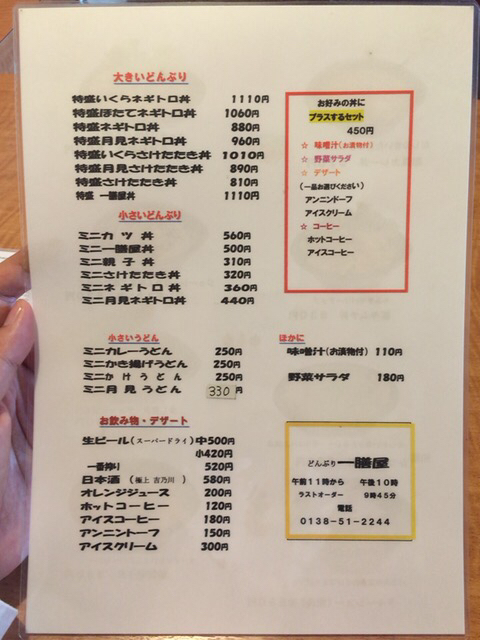 大きいどんぶり
特盛いくらネギトロ丼 1110円
特盛ほたてネギトロ丼 1060円
特盛ネギトロ丼 880円
特盛月見ネギトロ丼 960円
特盛いくらさけたたき丼 1010円
特盛月見さけたたき丼 890円
特盛さけたたき丼 810円
特盛 一膳屋丼 1110円
小さいどんぶり
ミニカツ丼 560円
ミニ一膳屋丼 500円
ミニ親子丼 310円
ミニさけたたき丼 320円
ミニネギトロ丼 360円
ミニ月見ネギトロ丼 440円
お好みの丼に
プラスするセット
450円
☆ 味噌汁(お漬物付)
☆ 野菜サラダ
☆ デザート
(一品お選びください)
アンニンドーフ
アイスクリーム
☆ コーヒー
ホットコーヒー
アイスコーヒー
小さいうどん
ミニカレーうどん 250円
ミニかき揚げうどん 250円
ミニかけうどん 250円
ミニ月見うどん 330円
ほかに
味噌汁(お漬物付) 110円
野菜サラダ 180円
お飲み物・デザート
生ビール(スーパードライ)中500円
小420円
一番搾り 520円
日本酒(極上 吉乃川) 580円
オレンジジュース 200円
ホットコーヒー 120円
アイスコーヒー 180円
アンニントーフ 150円
アイスクリーム 300円
どんぶり 一膳屋
午前11時から 午後10時
ラストオーダー 9時45分
電話
0138-51-2244